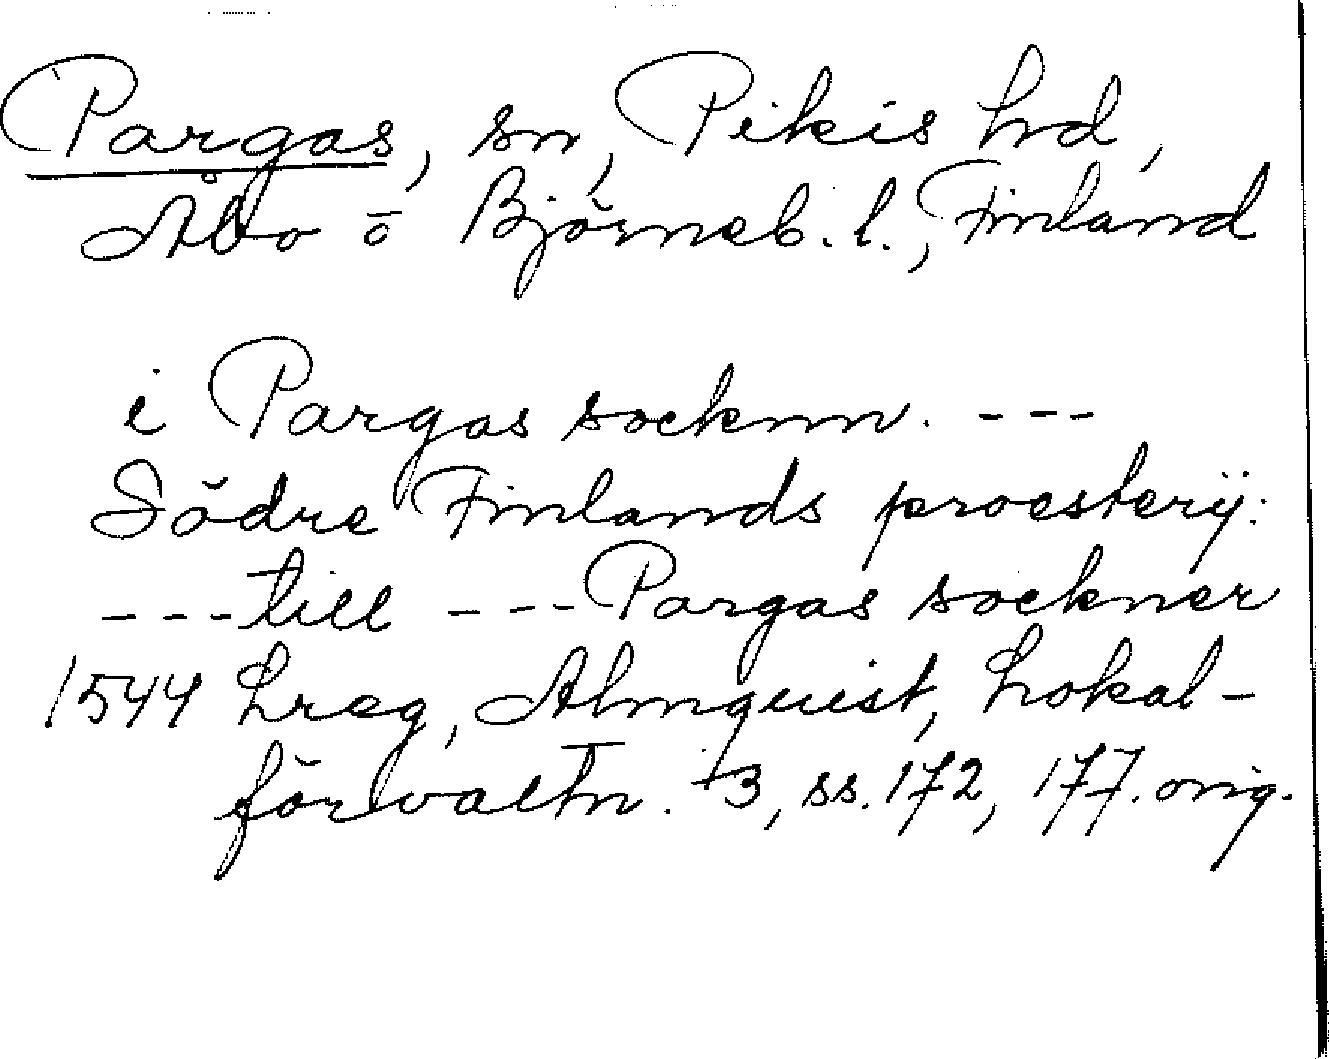 Pargas, sn, Pikis hd,
Åbo o Björneb. l., Finland
i Pargas socknn. ---
Södre Finlands proesterij:
--- till --- Pargas sockner
1544 Lreg, Almquist, Lokal-
förvaltn. 3, ss. 172, 177. orig.